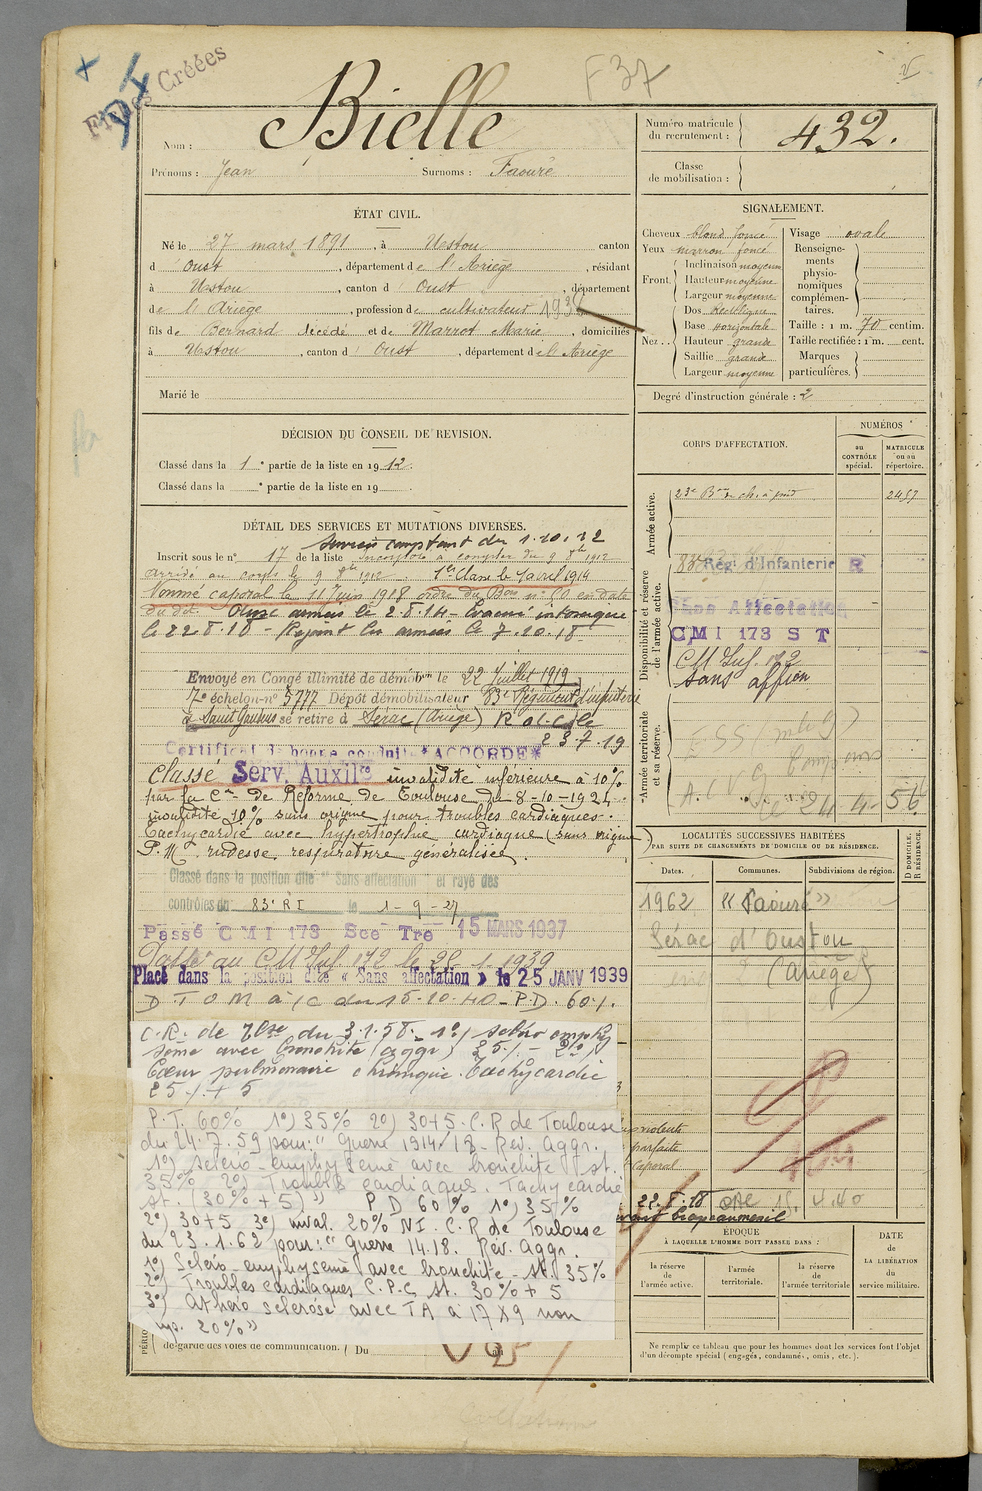 Fiches Créées
DI
F 37
Nom : Bielle
Prénoms : Jean Surnoms : Faouré
Numéro matricule du recrutement : 432.
Classe de mobilisation :
ÉTAT CIVIL.
Né le 27 mars 1891, à Ustou canton
d' Oust, département de l'Ariège, résidant
à Ustou, canton d' Oust, département
de l'Ariège, profession de cultivateur
fils de Bernard décédé et de Marrot Marie, domiciliés
à Ustou, canton d' Oust, département de l'Ariège
Marié le
SIGNALEMENT.
Cheveux blond foncé
Yeux marron foncé
Front. Inclinaison moyenne
Hauteur moyenne
Largeur moyenne
Nez. Dos Rectiligne
Base horizontale
Hauteur grande
Saillie grande
Largeur moyenne
Visage ovale
Renseignements physionomiques complémentaires.
Taille : 1 m. 70 centim.
Taille rectifiée : 1 m. cent.
Marques particulières.
Degré d'instruction générale : 2
DÉCISION DU CONSEIL DE REVISION.
Classé dans la 1e partie de la liste en 1912.
Classé dans la e partie de la liste en 19
DÉTAIL DES SERVICES ET MUTATIONS DIVERSES.
Services comptant du 1.10.12
Inscrit sous le n° 17 de la liste Incorporé à compter du 9 8bre 1912
arrivé au corps le 9 8bre 1912. 1re Classe le 1 avril 1914
Nommé caporal le 11 Juin 1918 ordre du Bon n° 60 en date
du dit. aux armées le 2.8.14 - Evacué intoxiqué
le 22.8.18 - Rejoint les armées le 7.10.18
Envoyé en Congé illimité de démobon le 22 Juillet 1919
7e échelon n° 5777 Dépôt démobilisateur 83e Régiment d'infanterie
à Saint Gaudens se retire à Sérac (Ariège)
23.7.19
Certificat de bonne conduite *ACCORDÉ*
Classé Serv. Auxilre invalidité inférieure à 10%
par la Con de Réforme de Toulouse du 8-10-192
invalidité 10% sans origine pour troubles cardiaques.
Tachycardie avec hypertrophie cardiaque (sans origine)
P.M. rudesse respiratoire généralisée.
Classé dans la position dite "Sans affectation" et rayé des
contrôles du 83e RI le 1-9-27
Passé CMI 173 Sce Tre 15 MARS 1937
Passé au CM Inf 172 le 20.1.1939
Placé dans la position dite « Sans affectation » le 25 JANV 1939
D T O M à /c du 15.10.40 - P.D. 60%.
C.R. de Tlse du 3.1.58. 1°/ scléro emphy
sème avec bronchite (aggr) 25% - 2°/
Cœur pulmonaire chronique. Tachycardie
25% + 5
P.T. 60% 1°) 35% 2°) 30+5. C.R de Toulouse
du 24.7.59 pour: "Guerre 1914-18 - Rev. Aggr.
1°) scléro-emphysème avec bronchite st.
35% 2°) Troubles cardiaques. Tachycardie
st. (30% + 5)" P D 60% 1°) 35%
2°) 30+5 3°) inval. 20% NI. C.R de Toulouse
du 23.1.62 pour: "Guerre 14.18. Rev. Aggr.
1°) Scléro-emphysème avec bronchite - st. 35%
2°) Troubles cardiaques C.P.C. st. 30% + 5
3°) Athéro sclérose avec TA à 17x9 non
imp. 20%"
de garde des voies de communication. Du
CORPS D'AFFECTATION.
NUMÉROS
au CONTRÔLE spécial.
MATRICULE ou au répertoire.
Armée active.
23e Bon de ch. à pied
Disponibilité et réserve de l'armée active.
83e Rég. d'Infanterie R
Sans Affectation
CMI 173 S T
CM Inf. 172
Sans affon
Armée territoriale et sa réserve.
LOCALITÉS SUCCESSIVES HABITÉES
PAR SUITE DE CHANGEMENTS DE DOMICILE OU DE RÉSIDENCE.
Dates. Communes. Subdivisions de région.
D DOMICILE. R RÉSIDENCE.
1962 "Faouré"
Sérac d'Oustou
(Ariège)
caporal
22.8.18
ÉPOQUE
À LAQUELLE L'HOMME DOIT PASSER DANS :
la réserve de l'armée active.
l'armée territoriale.
la réserve de l'armée territoriale
DATE de LA LIBÉRATION du service militaire.
Ne remplir ce tableau que pour les hommes dont les services font l'objet
d'un décompte spécial (engagés, condamnés, omis, etc.).